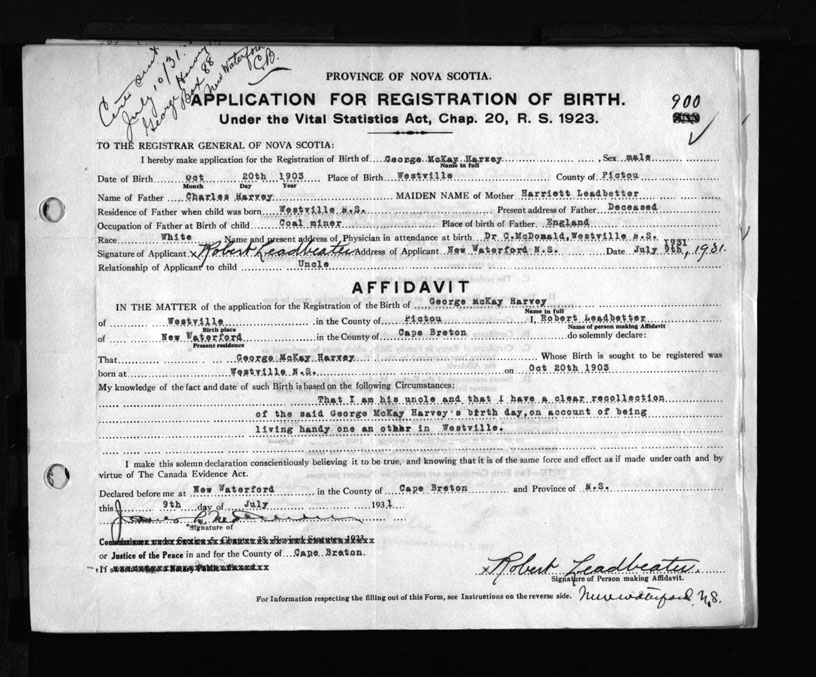 Cert sent
July 10/31.
George Harvey
Box 88
New Waterford
C.B.
PROVINCE OF NOVA SCOTIA.
APPLICATION FOR REGISTRATION OF BIRTH.
900
Under the Vital Statistics Act, Chap. 20, R. S. 1923.
TO THE REGISTRAR GENERAL OF NOVA SCOTIA:
I hereby make application for the Registration of Birth of George McKay Harvey, Sex male
Name in full
Date of Birth Oct 20th 1903 Place of Birth Westville County of Pictou
Month Day Year
Name of Father Charles Harvey MAIDEN NAME of Mother Harriett Leadbetter
Residence of Father when child was born Westville N.S. Present address of Father Deceased
Occupation of Father at Birth of child Coal miner Place of birth of Father England
Race White Name and present address of Physician in attendance at birth Dr C.McDonald,Westville N.S.
Signature of Applicant x Robert Leadbeater Address of Applicant New Waterford N.S. Date July 9th 1931, 1931.
Relationship of Applicant to child Uncle
AFFIDAVIT
IN THE MATTER of the application for the Registration of the Birth of George McKay Harvey
Name in full
of Westville in the County of Pictou I, Robert Leadbetter
Birth place Name of person making Affidavit
of New Waterford in the County of Cape Breton do solemnly declare:
Present residence
That George McKay Harvey Whose Birth is sought to be registered was
born at Westville N.S. on Oct 20th 1903
My knowledge of the fact and date of such Birth is based on the following Circumstances:
That I am his uncle and that I have a clear recollection
of the said George McKay Harvey's birth day,on account of being
living handy one an other in Westville.
I make this solemn declaration conscientiously believing it to be true, and knowing that it is of the same force and effect as if made under oath and by
virtue of The Canada Evidence Act.
Declared before me at New Waterford in the County of Cape Breton and Province of N.S.
this 9th day of July 1931
Signature of
or Justice of the Peace in and for the County of Cape Breton.
If
x Robert Leadbeater
Signature of Person making Affidavit.
For Information respecting the filling out of this Form, see Instructions on the reverse side.
New Waterford, N.S.